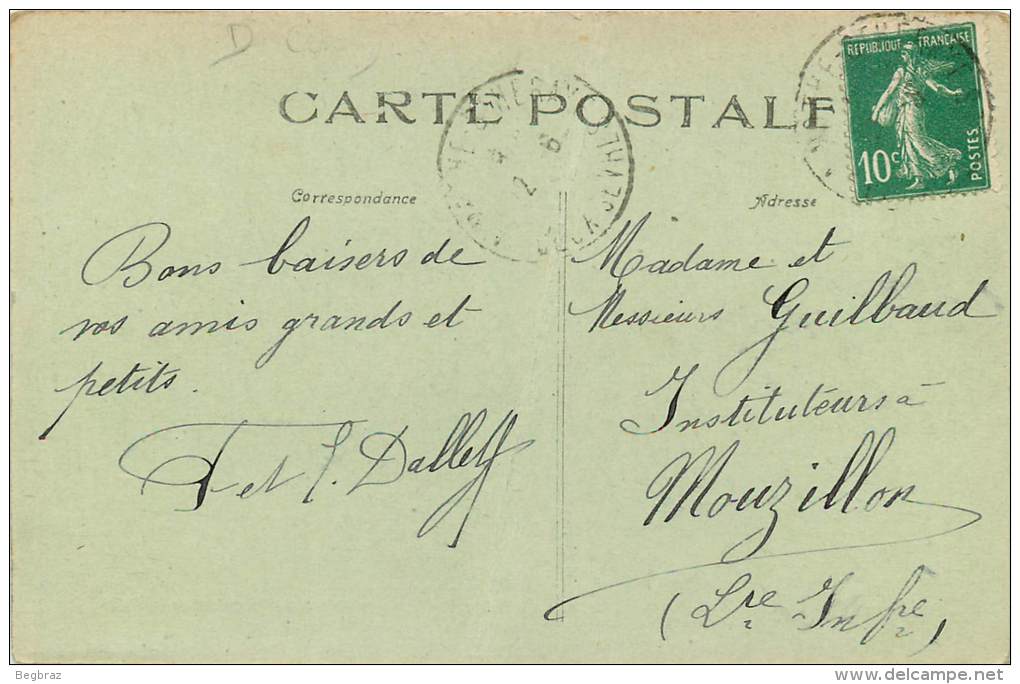 CARTE POSTALE
REPUBLIQUE FRANÇAISE
10c
POSTES
Correspondance
Adresse
Bons baisers de
vos amis grands et
petits.
F et
Madame et
Messieurs Guilbaud
Instituteurs à
Mouzillon
(Lre Infre)
Begbraz
delcampe.net